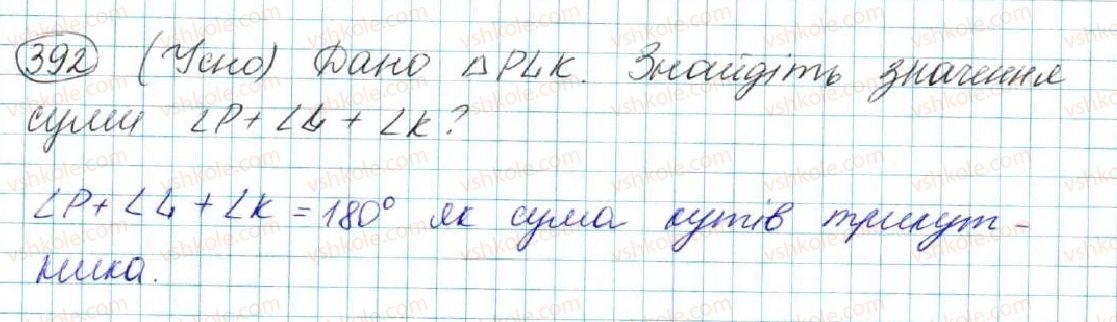 392 (Усно) Дано △PLK. Знайдіть значення
суми ∠P + ∠L + ∠K?
∠P + ∠L + ∠K = 180° як сума кутів трикут-
ника.